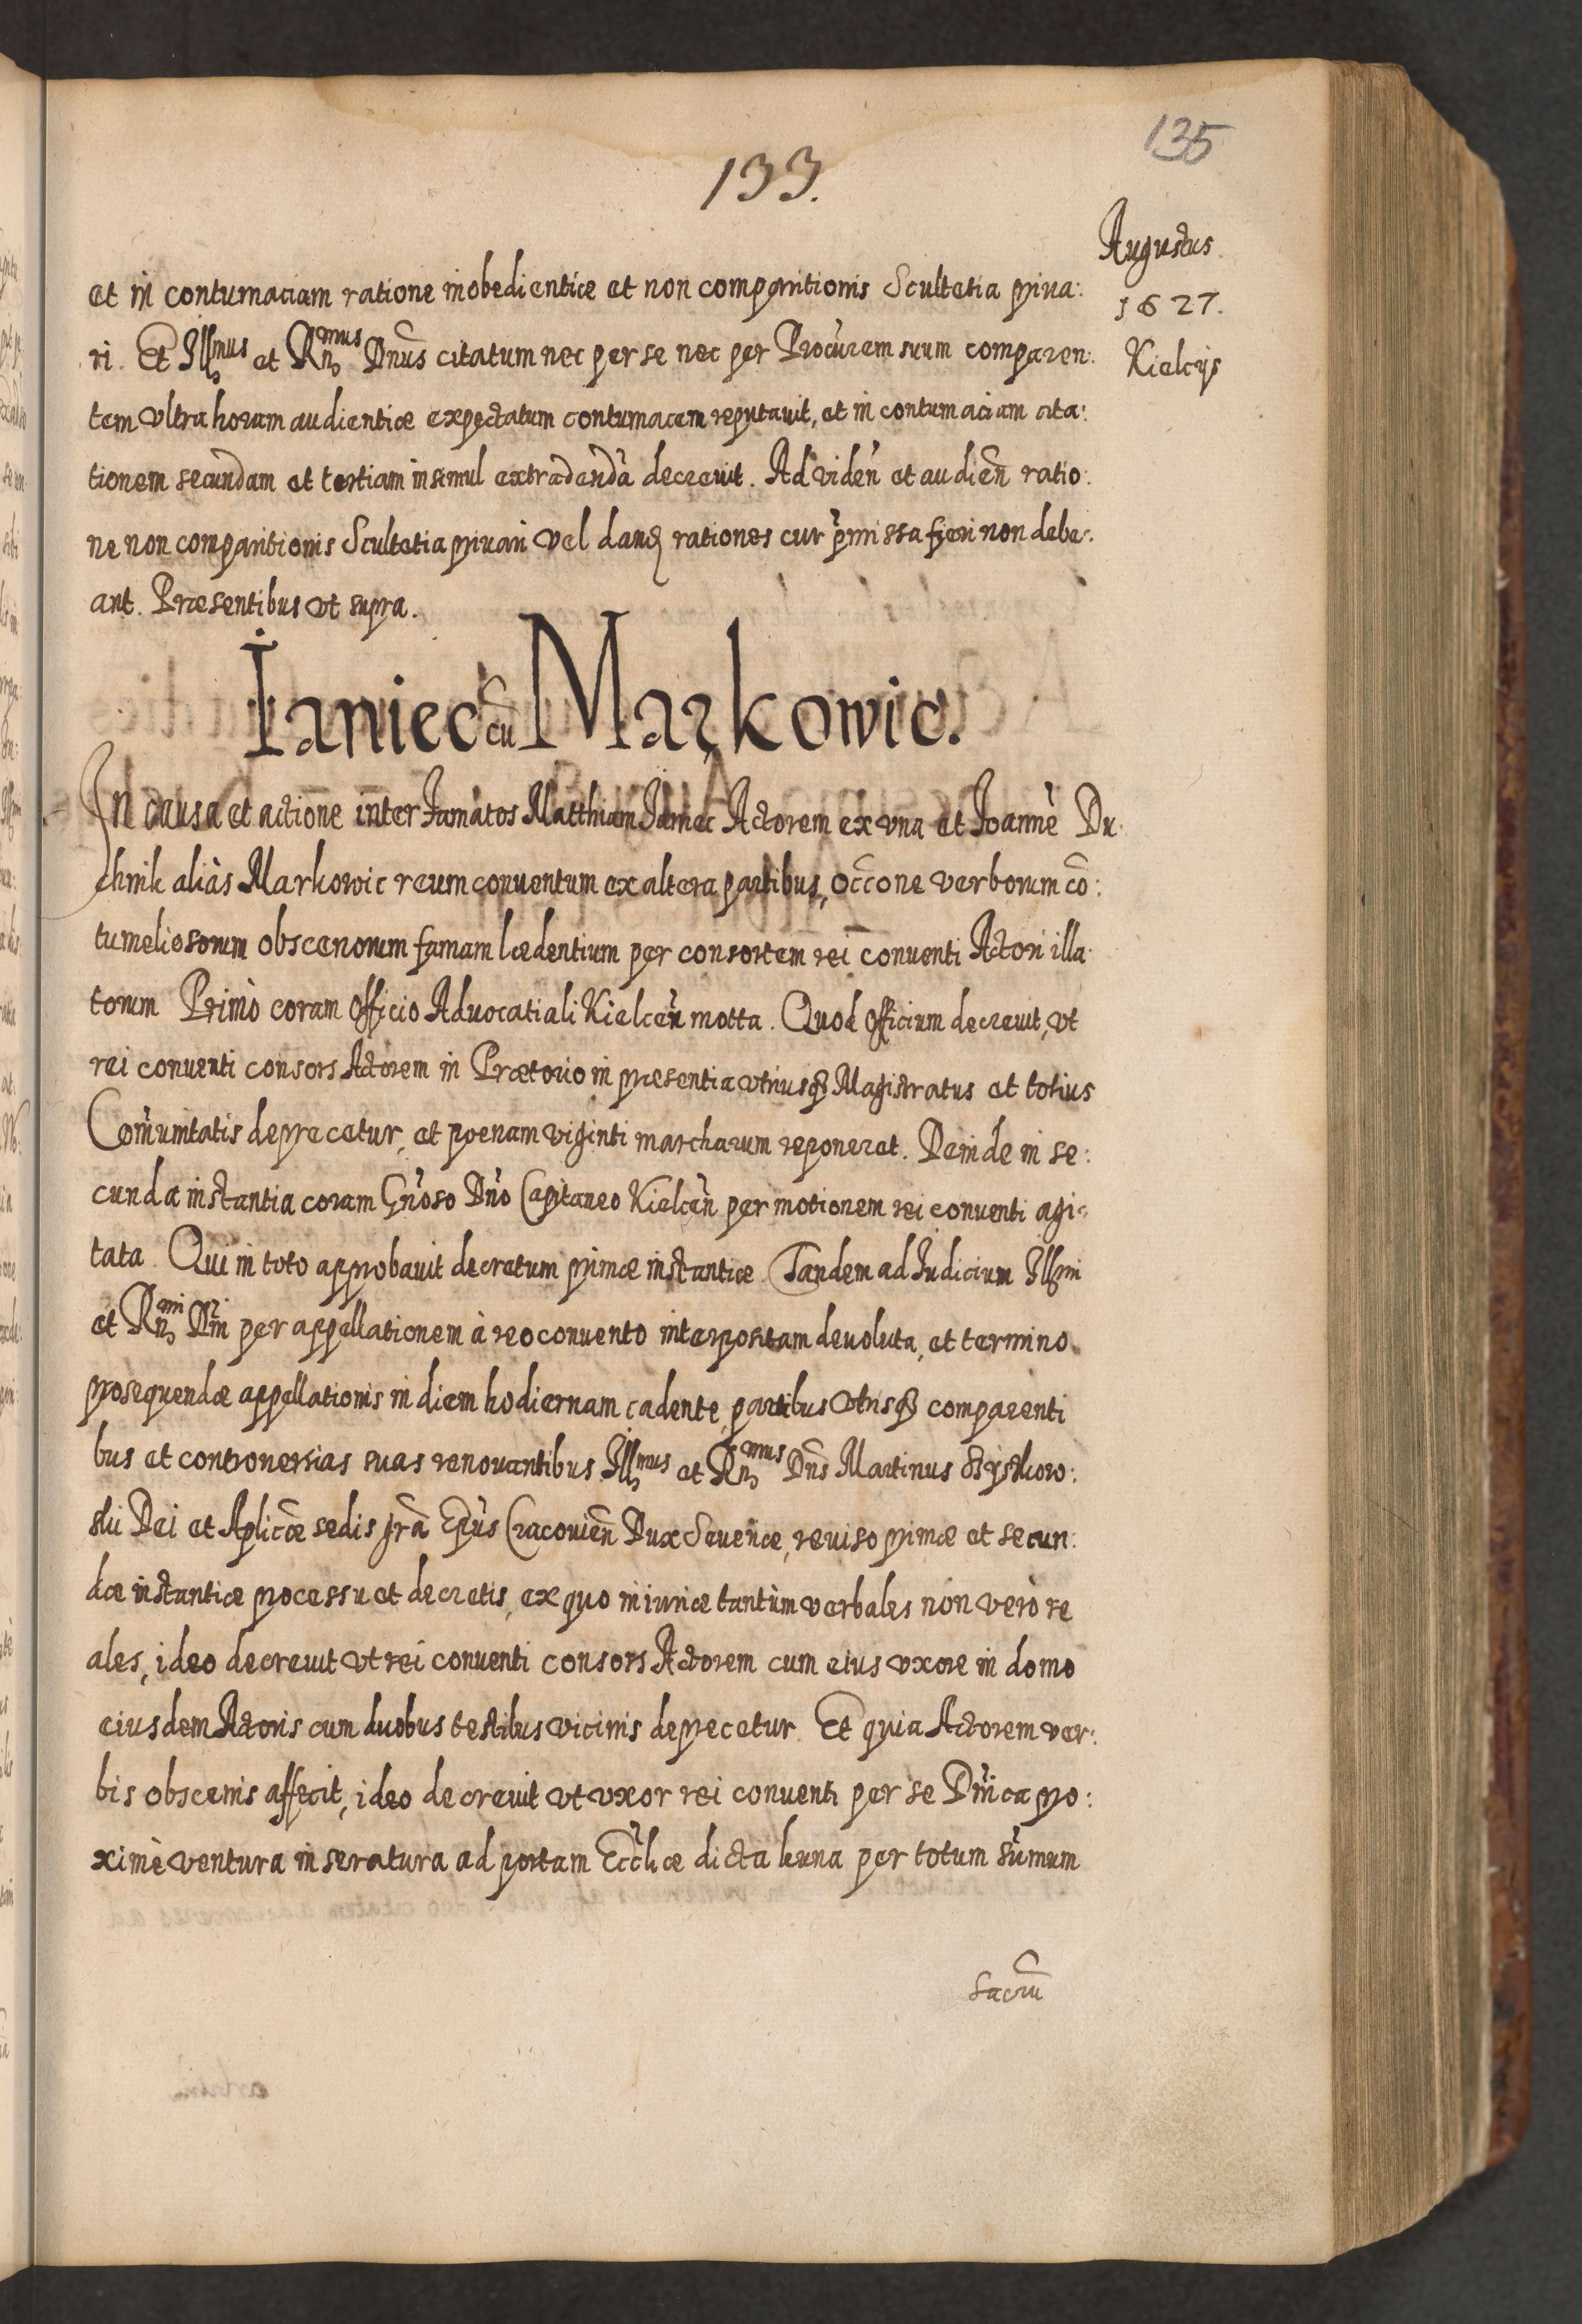 135
133.
Augustus
1627.
Kielcijs
et in contumaciam ratione inobedientiæ et non comparitionis Scultetia priua:
ri. Et Illmus et Rndmus Dnus citatum nec per se nec per Procurem suum comparen:
tem vltra horam audientiæ expectatum contumacem reputauit, et in contumaciam cita:
tionem secundam et tertiam insimul extradendã decreuit. Ad viden̄ et audien̄ ratio:
ne non comparitionis Scultetia priuari vel dand rationes cur p̄missa fieri non debe:
ant. Præsentibus vt supra.
Ianiec cū Markowic.
In causa et actione inter Famatos Matthiam Janiec Actorem ex vna et Joannē Du:
chnik aliàs Markowic reum conuentum ex altera partibus, occ̄one verborum cō:
tumeliosorum obscenorum famam lædentium per consortem rei conuenti Actori illa:
torum Primò coram Officio Aduocatiali Kielcen̄ motta. Quod Officium decreuit, vt
rei conuenti consors Actorem in Prætorio in presentia vtriusq̃ Magistratus et totius
Com̄unitatis deprecetur, et poenam viginti marcharum reponeret. Deinde in se:
cunda instantia coram Gn̄oso Dn̄o Capitaneo Kielcen̄ per motionem rei conuenti agi:
tata. Qui in toto approbauit decretum primæ instantiæ. Tandem ad Iudicium Illmi
et Rndmi Dn̄i per appellationem à reo conuento interpositam deuoluta, et termino
prosequendæ appellationis in diem hodiernam cadente, partibus vtrisq̃ comparenti
bus et controuersias suas renouantibus Illmus et Rndmus Dn̄s Martinus Szyszkow:
ski Dei et Aplicæ sedis grã Ep̄us Cracouien̄ Dux Seueriæ, reuiso primæ et secun:
dæ instantiæ processu et decretis, ex quo iniuriæ tantùm verbales non verò re
ales, ideo decreuit vt rei conuenti consors Actorem cum eius vxore in domo
eiusdem Actoris cum duobus testibus vicinis deprecetur. Et quia Actorem ver:
bis obscenis affecit, ideo decreuit vt vxor rei conuenti per se Dn̄ica pro:
ximè ventura in seratura ad portam Eccl̄iæ dicta kuna per totum sum̄um
sacrū